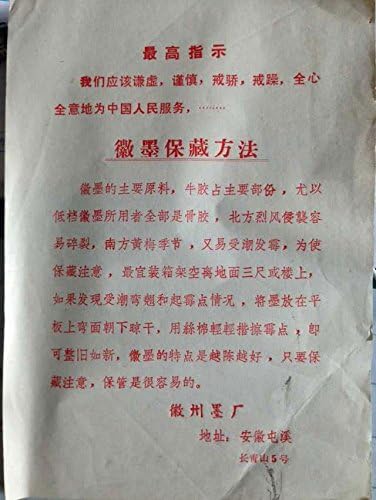 最高指示
我们应该谦虚，谨慎，戒骄，戒躁，全心
全意地为中国人民服务，………
徽墨保藏方法
徽墨的主要原料，牛胶占主要部份，尤以
低档徽墨所用者全部是骨胶，北方烈风侵襲容
易碎裂，南方黄梅季节，又易受潮发霉，为使
保藏注意，最宜装箱架空离地面三尺或楼上，
如果发现受潮弯翘和起霉点情况，将墨放在平
板上弯面朝下晾干，用絲棉輕輕揩擦霉点，即
可整旧如新，徽墨的特点是越陈越好，只要保
藏注意，保管是很容易的。
徽州墨厂
地址：安徽屯溪
长青山5号